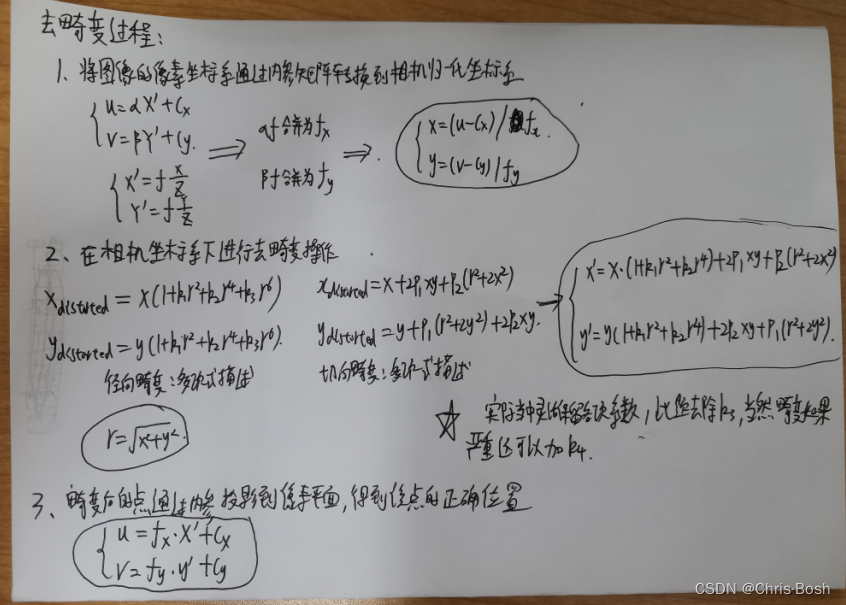 去畸变过程:
1、将图像的像素坐标系通过内参矩阵转换到相机归一化坐标系
u=αX'+Cx
V=βY'+Cy.
X'=f X/Z
Y'=f Y/Z
αf合并为fx
βf合并为fy
x=(u-Cx)/fx
y=(v-Cy)/fy
2、在相机坐标系下进行去畸变操作
Xdistorted = X(1+k₁r²+k₂r⁴+k₃r⁶)
ydistorted=y(1+k₁r²+k₂r⁴+k₃r⁶).
径向畸变:多项式描述
r=√x²+y².
xdistorted=X+2P₁xy+P₂(r²+2x²)
ydistorted=y+P₁(r²+2y²)+2P₂xy.
切向畸变:多项式描述
x'=x·(1+k₁r²+k₂r⁴)+2P₁xy+P₂(r²+2x²)
y'=y(1+k₁r²+k₂r⁴)+2P₂xy+P₁(r²+2y²).
☆ 实际当中灵活保留各项系数,比如去除k₃,当然畸变如果
严重还可以加k₄.
3、畸变后的点通过内参投影到像素平面,得到该点的正确位置
u=fx·X'+Cx
V=fy·y'+Cy
CSDN @Chris·Bosh